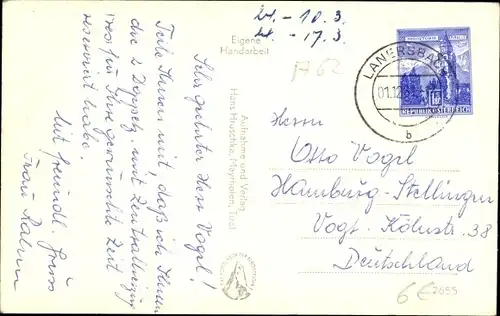 24. - 10. 3.
24. - 17. 3.
Eigene
Handarbeit
Sehr geehrter Herr Vogel!
Teile Ihnen mit, daß ich Ihnen
die 2 Doppelz. mit Zentralheizung
für Ihre gewünschte Zeit
reserviert habe.
Mit freundl. Grüss
Frau
Aufnahme und Verlag
Hans Hruschka, Mayrhofen, Tirol
A 62
LANERSBACH
01.12
b
REPUBLIK ÖSTERREICH
Herrn
Otto Vogel
Hamburg-Stellingen
Vogt-Kölnstr. 38
Deutschland
6€
2655